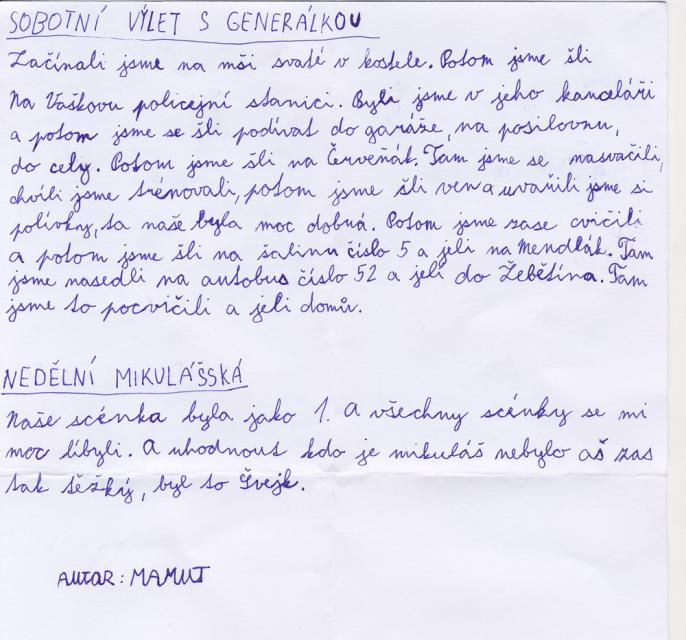 SOBOTNÍ VÝLET S GENERÁLKOU
Začínali jsme na mši svaté v kostele. Potom jsme šli
Na Vaškovu policejní stanici. Byli jsme v jeho kanceláři
a potom jsme se šli podívat do garáže, na posilovnu,
do cely. Potom jsme šli na Červeňák. Tam jsme se nasvačili,
chvíli jsme trénovali, potom jsme šli ven a uvařili jsme si
polívky, ta naše byla moc dobrá. Potom jsme zase cvičili
a potom jsme šli na šalinu číslo 5 a jeli na Mendlák. Tam
jsme nasedli na autobus číslo 52 a jeli do Žebětína. Tam
jsme to pocvičili a jeli domů.
NEDĚLNÍ MIKULÁŠSKÁ
Naše scénka byla jako 1. A všechny scénky se mi
moc líbyli. A uhodnout kdo je mikuláš nebylo aš zas
tak těžký, byl to Švejk.
AUTOR: MAMUT